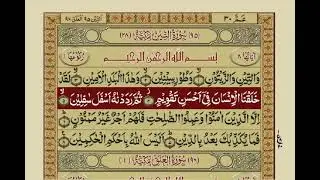 عمّ ٣٠
(٩٥) سُوْرَةُ التِّيْنِ مَكِّيَّةٌ (٢٨)
بِسْمِ اللّٰهِ الرَّحْمٰنِ الرَّحِيْمِ
وَالتِّيْنِ وَالزَّيْتُوْنِ وَطُوْرِ سِيْنِيْنَ وَهٰذَا الْبَلَدِ الْاَمِيْنِ لَقَدْ
خَلَقْنَا الْاِنْسَانَ فِيْۤ اَحْسَنِ تَقْوِيْمٍ ثُمَّ رَدَدْنٰهُ اَسْفَلَ سٰفِلِيْنَ
اِلَّا الَّذِيْنَ اٰمَنُوْا وَعَمِلُوا الصّٰلِحٰتِ فَلَهُمْ اَجْرٌ غَيْرُ مَمْنُوْنٍ
فَمَا يُكَذِّبُكَ بَعْدُ بِالدِّيْنِ اَلَيْسَ اللّٰهُ بِاَحْكَمِ الْحٰكِمِيْنَ
سُوْرَةُ الْعَلَقِ مَكِّيَّةٌ (١)